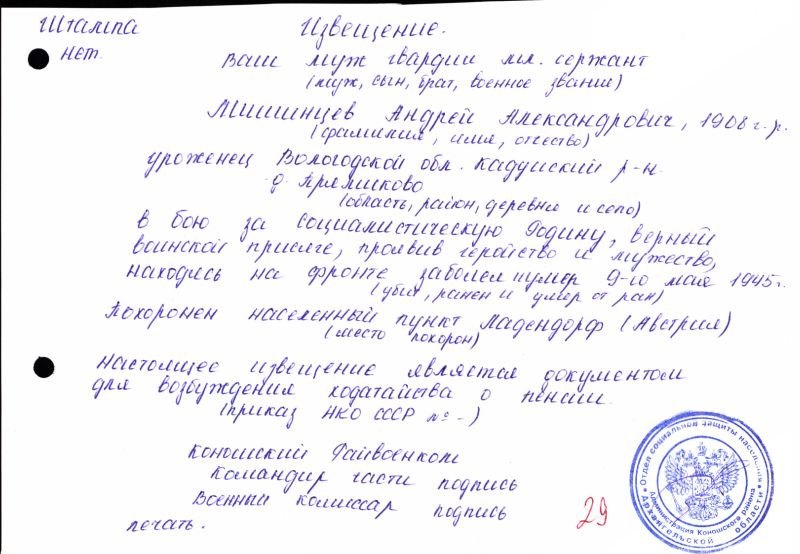 Штампа
нет.
Извещение.
Ваш муж гвардии мл. сержант
(муж, сын, брат, военное звание)
Мишинцев Андрей Александрович, 1908 г.р.
(фамилия, имя, отчество)
уроженец Вологодской обл. Кадуйский р-н.
д. Прямиково
(область, район, деревня и село)
в бою за Социалистическую Родину, верный
воинской присяге, проявив геройство и мужество,
находясь на фронте заболел и умер 9-го мая 1945г.
(убит, ранен и умер от ран)
Похоронен населенный пункт Ладендорф (Австрия)
(место похорон)
Настоящее извещение является документом
для возбуждения ходатайства о пенсии.
(приказ НКО СССР № -)
Коношский Райвоенком
Командир части подпись
Военный комиссар подпись
печать.
29
Отдел социальной защиты населения
Администрация Коношского района
Архангельской области